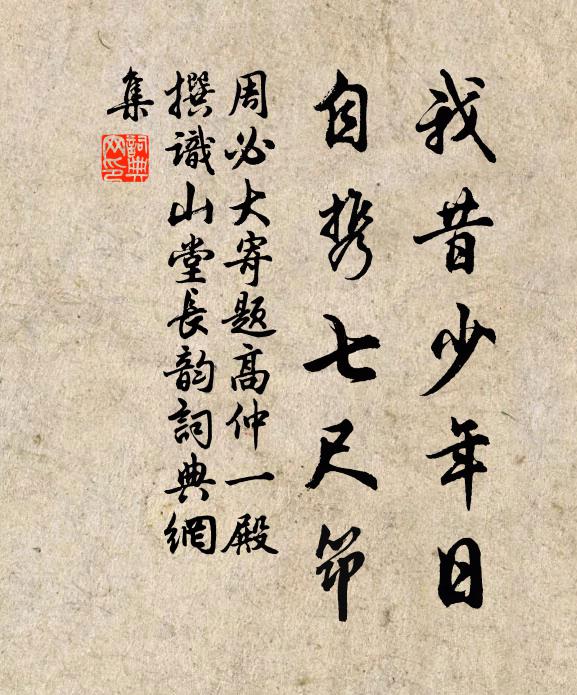 我昔少年日
自携七尺筇
周必大寄题高仲一殿
撰識山堂長韵詞典網
集
詞典網印